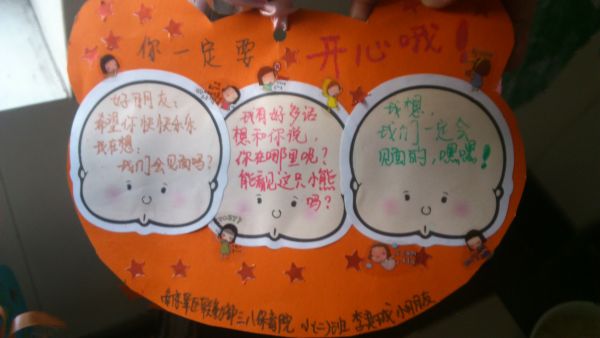 你一定要 开心哦！
好朋友：
希望你快快乐乐
我在想：
我们会见面吗？
我有好多话
想和你说，
你在哪里呢？
能看见这只小熊
吗？
我想，
我们一定会
见面的，嘿嘿！
南京军区联勤部三八保育院 小(二)班 李 小朋友